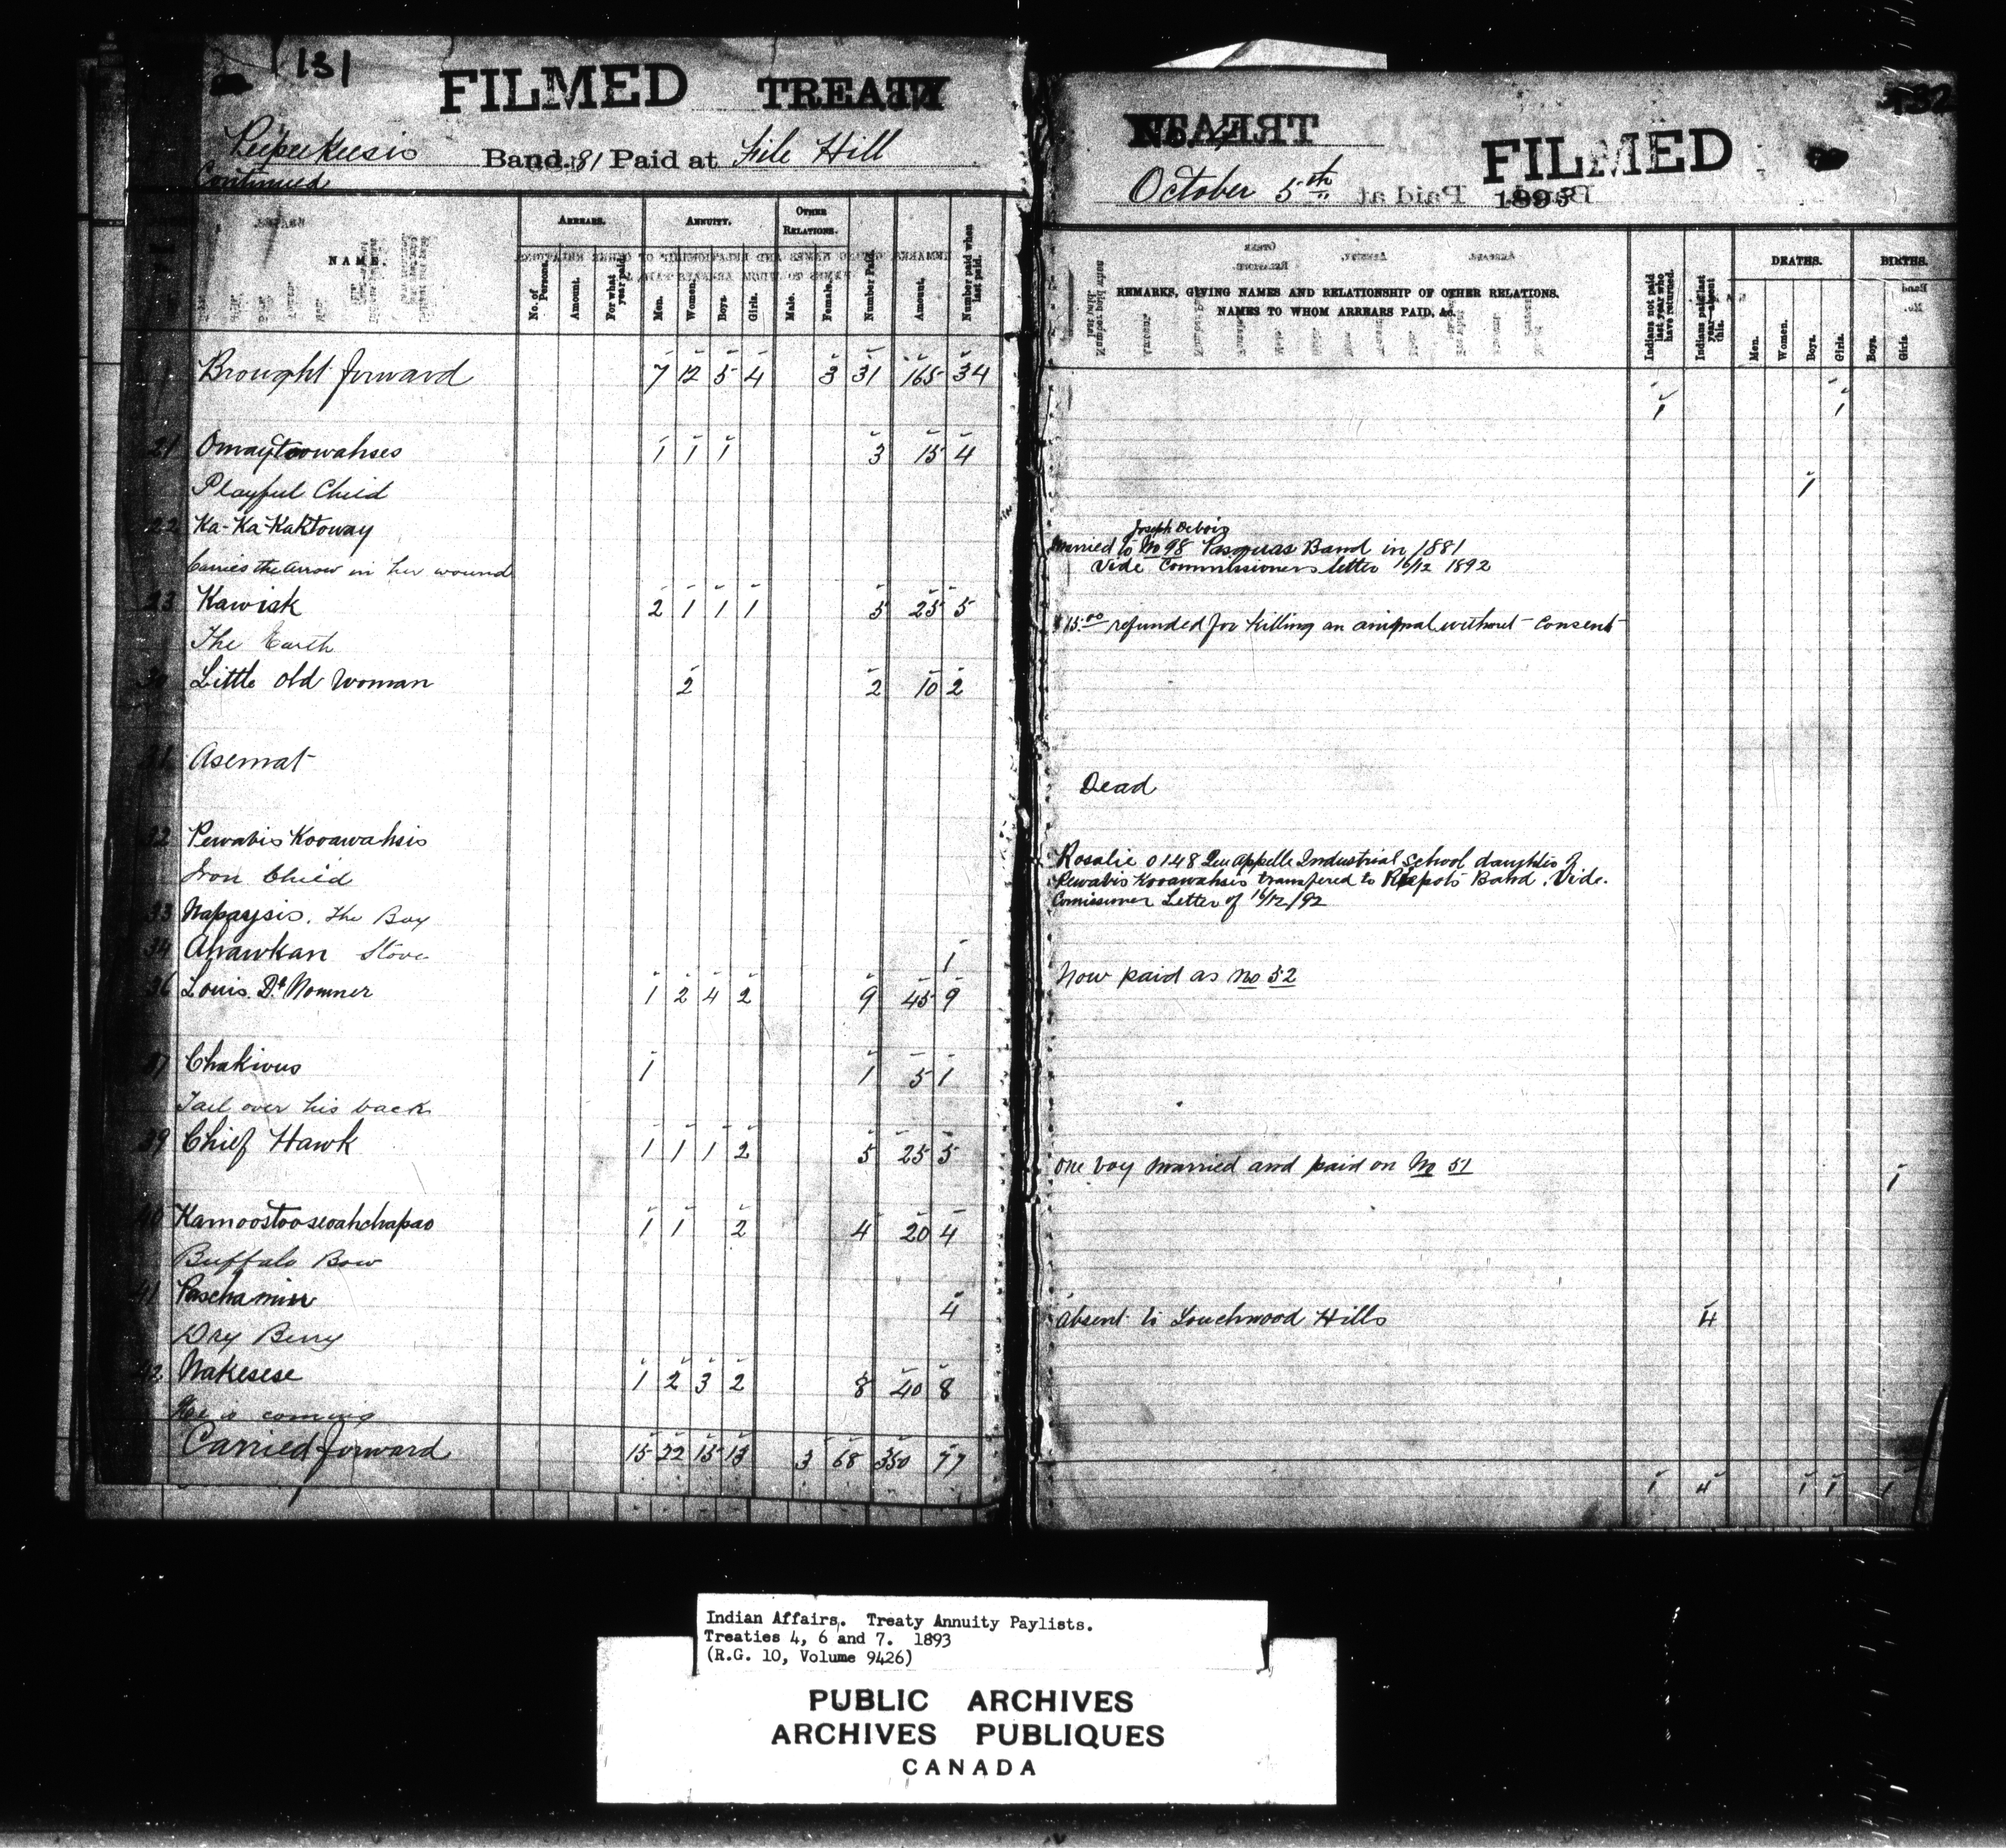 131
FILMED TREATY
Peepeekeesis Band. 81 Paid at File Hill
Continued
NAME.
ARREARS. ANNUITY. OTHER RELATIONS.
No. of Persons. Amount. For what year paid. Men. Women. Boys. Girls. Male. Female. Number Paid. Amount. Number paid when last paid.
Brought forward 7 12 5 4 3 31 165 34
21 Omaytoowahses 1 1 1 3 15 4
Playful Child
22 Ka-Ka-Kaktoway
Carries the Arrow in her wound
23 Kawisk 2 1 1 1 5 25 5
The Earth
30 Little Old Woman 2 2 10 2
31 Asemat
32 Pewabis Kooawahsis
Iron Child
33 Napaysis. The Boy
34 Ahawkan Stove 1
36 Louis Dt Nomner 1 2 4 2 9 45 9
37 Chakivus 1 1 5 1
Tail over his back
39 Chief Hawk 1 1 1 2 5 25 5
40 Kamoostooseoahchapao 1 1 2 4 20 4
Buffalo Bow
41 Paschamin 4
Dry Berry
42 Nakesese 1 2 3 2 8 40 8
He is coming
Carried forward 15 22 15 13 3 68 350 77
132
No. 4 FILMED
October 5th 1893
REMARKS, GIVING NAMES AND RELATIONSHIP OF OTHER RELATIONS.
NAMES TO WHOM ARREARS PAID, &c.
Indians not paid last year who have returned. Indians paid last year—absent this.
DEATHS. BIRTHS.
Men. Women. Boys. Girls. Boys. Girls.
1 1
1
Joseph Debois
Married to No 98 Pasquas Band in 1881
Vide Commissioners letter 16/12 1892
$15.00 refunded for killing an animal without consent
Dead
Rosalie 0148 Qu'Appelle Industrial School daughter of
Pewabis Kooawahsis transfered to Band. Vide.
Comissioner Letter of 16/12/92
Now paid as No 52
One boy married and paid on No 51 1
Absent to Touchwood Hills 4
1 4 1 1 1
Indian Affairs. Treaty Annuity Paylists.
Treaties 4, 6 and 7. 1893
(R.G. 10, Volume 9426)
PUBLIC ARCHIVES
ARCHIVES PUBLIQUES
CANADA